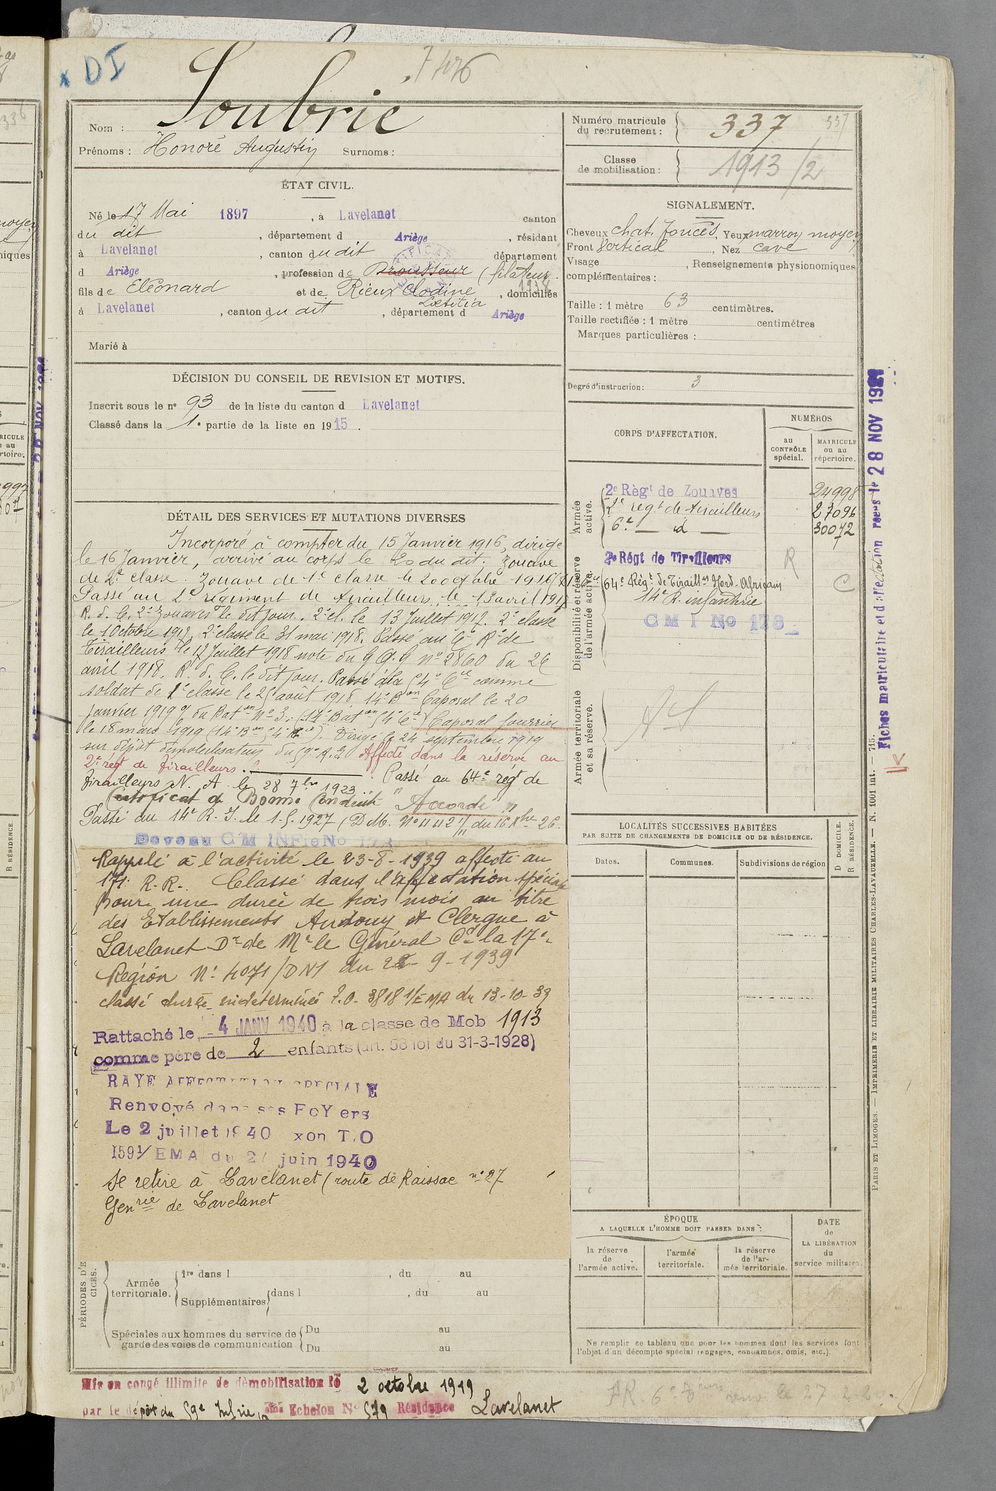 x DI
Nom : Soubrié
Prénoms : Honoré Augustin Surnoms :
ÉTAT CIVIL.
Né le 17 Mai 1897, à Lavelanet canton
du dit, département d Ariège, résidant
à Lavelanet, canton du dit département
d Ariège, profession de (fileteur
1938
fils de Eléonard et de Rieux Clodine, domiciliés
Laetitia
à Lavelanet, canton du dit, département d Ariège
Marié à
DÉCISION DU CONSEIL DE REVISION ET MOTIFS.
Inscrit sous le n° 93 de la liste du canton d Lavelanet
Classé dans la 1e partie de la liste en 1915.
DÉTAIL DES SERVICES ET MUTATIONS DIVERSES
Incorporé à compter du 15 Janvier 1916, dirigé
le 16 Janvier, arrivé au corps le 20 du dit. Zouave
de 2e classe. Zouave de 1e classe le 20 octobre 1916
Passé au 1er régiment de Tirailleurs le 1 avril 1917
R. d. C. 2e Zouaves le dit jour. 2e cl. le 13 juillet 1917. 2e classe
le 1 Octobre 1917, 2e classe le 31 mai 1918. Passé au 6e Rt de
Tirailleurs le 12 Juillet 1918 note du G.Q.G n° 2860 du 26
avril 1918. R. d. C. le dit jour. Passé à la 4e Cie comme
soldat de 1e classe le 25 août 1918 14e Bon Caporal le 20
janvier 1919 du Baton n° 3. (14e Baton 4e Cie) Caporal fourrier
le 18 mars 1919 (14e Bon 4e Cie). Dirigé le 24 septembre 1919
sur dépôt démobilisateur du 59e R.I. Affecté dans la réserve au
2e régt de Tirailleurs. Passé au 64e régt de
Tirailleurs N. A. le 28 7bre 1923
Certificat de Bonne Conduite "Accordé"
Passé au 14e R. I. le 1.5.1927 (D.M. n° 4427 du 16 Xbre 26.
Devenu C M INFie No 17
Rappelé à l'activité le 23-8-1939 affecté au
171 R. R. Classé dans l'affectation spéciale
pour une durée de trois mois au titre
des Etablissements Audouy et Clergue à
Lavelanet Don de Mr le Général Ct la 17e
Région N° 4071/DN1 du 28-9-1939
classé durée indéterminée F.O. 3818 1/EMA du 13-10-39
Rattaché le 4 JANV 1940 à la classe de Mob 1913
comme père de 2 enfants (art. 58 loi du 31-3-1928)
RAYE AFFECTATION SPECIALE
Renvoyé dans ses FoYers
Le 2 juillet 1940 xon T.O
1591/EMA du 27 juin 1940
se retire à Lavelanet (route de Raissac n° 27
Genrie de Lavelanet
PÉRIODES D'EXERCICES.
Armée territoriale. 1re dans l , du au
Supplémentaires dans l , du au
Spéciales aux hommes du service de Du au
garde des voies de communication Du au
Mis en congé illimité de démobilisation le 2 octobre 1919
par le dépôt du 59e Infrie 2me Echelon N° 579 Résidence Lavelanet
Numéro matricule
du recrutement : 337
Classe
de mobilisation : 1913/2
SIGNALEMENT.
Cheveux chat. foncés, Yeux marron moyen
Front Vertical, Nez cave
Visage , Renseignements physionomiques
complémentaires :
Taille : 1 mètre 63 centimètres.
Taille rectifiée : 1 mètre centimètres
Marques particulières :
Degré d'instruction : 3
CORPS D'AFFECTATION.
NUMÉROS
au CONTRÔLE spécial.
MATRICULE ou au répertoire.
Armée active.
2e Régt de Zouaves 24998
1er régt de Tirailleurs 27096
6e — d — 30072
Disponibilité et réserve de l'armée active.
2e Régt de Tirailleurs R
64e Régt de Tiraillrs Nord-Africain C
14e R. infanterie
C M I No 178
Armée territoriale et sa réserve.
LOCALITÉS SUCCESSIVES HABITÉES
PAR SUITE DE CHANGEMENTS DE DOMICILE OU DE RÉSIDENCE.
Dates. Communes. Subdivisions de région D DOMICILE. R RÉSIDENCE.
ÉPOQUE
A LAQUELLE L'HOMME DOIT PASSER DANS :
la réserve de l'armée active.
l'armée territoriale.
la réserve de l'armée territoriale.
DATE de LA LIBÉRATION du service militaire.
Ne remplir ce tableau que pour les hommes dont les services font
l'objet d'un décompte spécial (engagés, condamnés, omis, etc.).
Fiches matriculaire et d'affectation reçues le 28 NOV 1921
PARIS ET LIMOGES. — IMPRIMERIE ET LIBRAIRIE MILITAIRES CHARLES-LAVAUZELLE. — N. 1001 int. — 715.